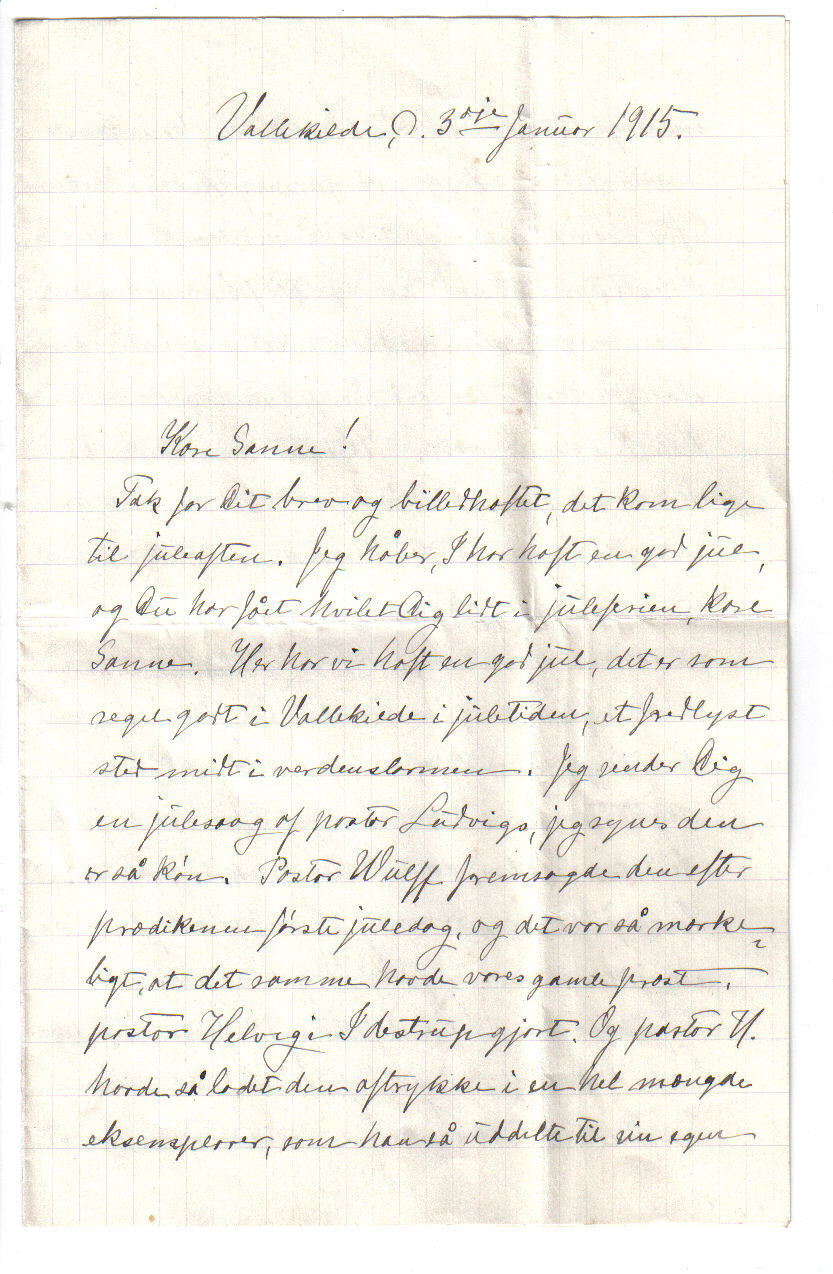 Vallekilde, d. 3dje Januar 1915.
Kære Sanne!
Tak for Dit brev og billedhæftet, det kom lige
til juleaften. Jeg håber, I har haft en god jul,
og Du har fået hvilet Dig lidt i juleferien, kære
Sanne. Her har vi haft en god jul, det er som
regel godt i Vallekilde i juletiden, et fredlyst
sted midt i verdenslarmen. Jeg sender Dig
en julesang af pastor Ludvigs, jeg synes den
er så køn. Pastor Wulff fremsagde den efter
prædikenen første juledag, og det var så mærke-
ligt, at det samme havde vores gamle præst,
pastor Helveg i Idestrup gjort. Og pastor H.
havde så ladet den aftrykke i en hel mængde
eksemplarer, som han så uddelte til sin egen